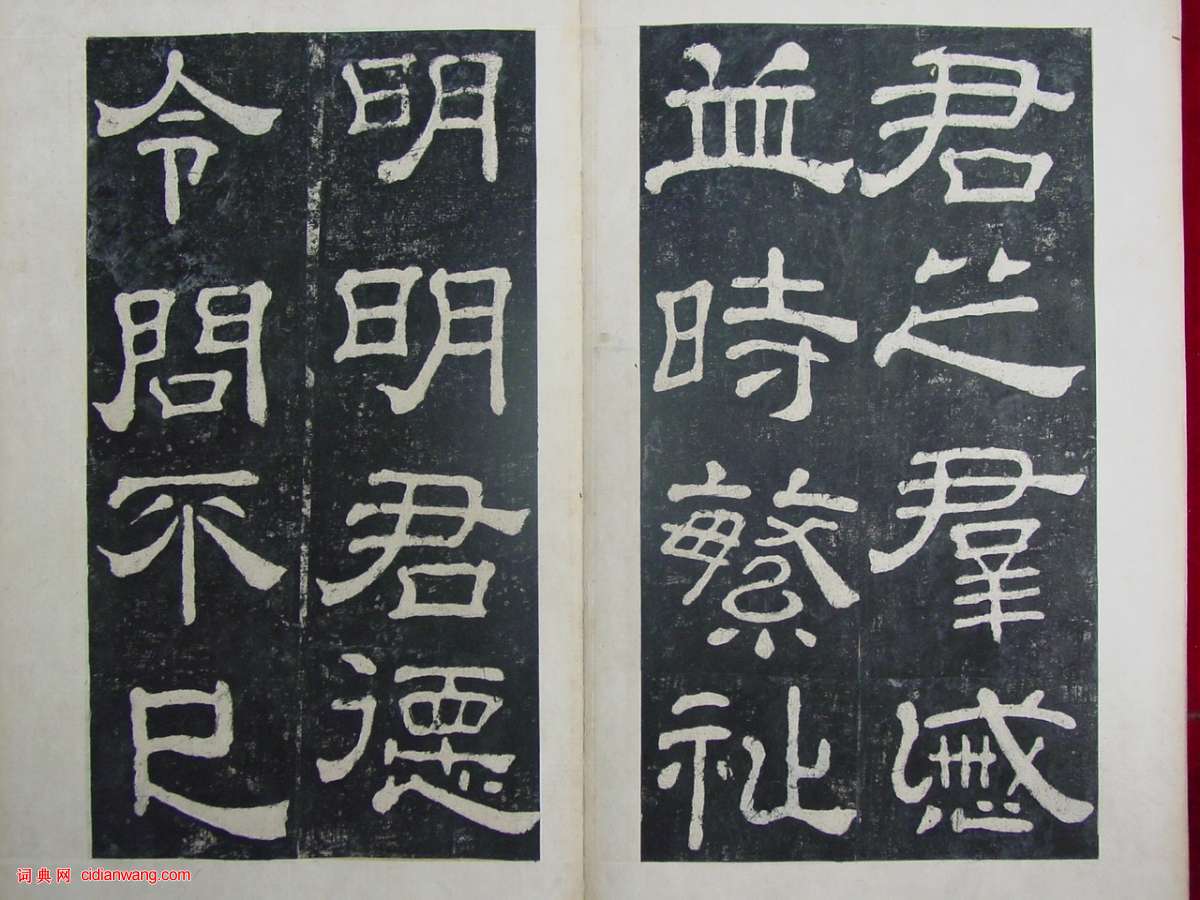 君之羣慼
並時繁祉
明明君德
令問不已
词典网 cidianwang.com